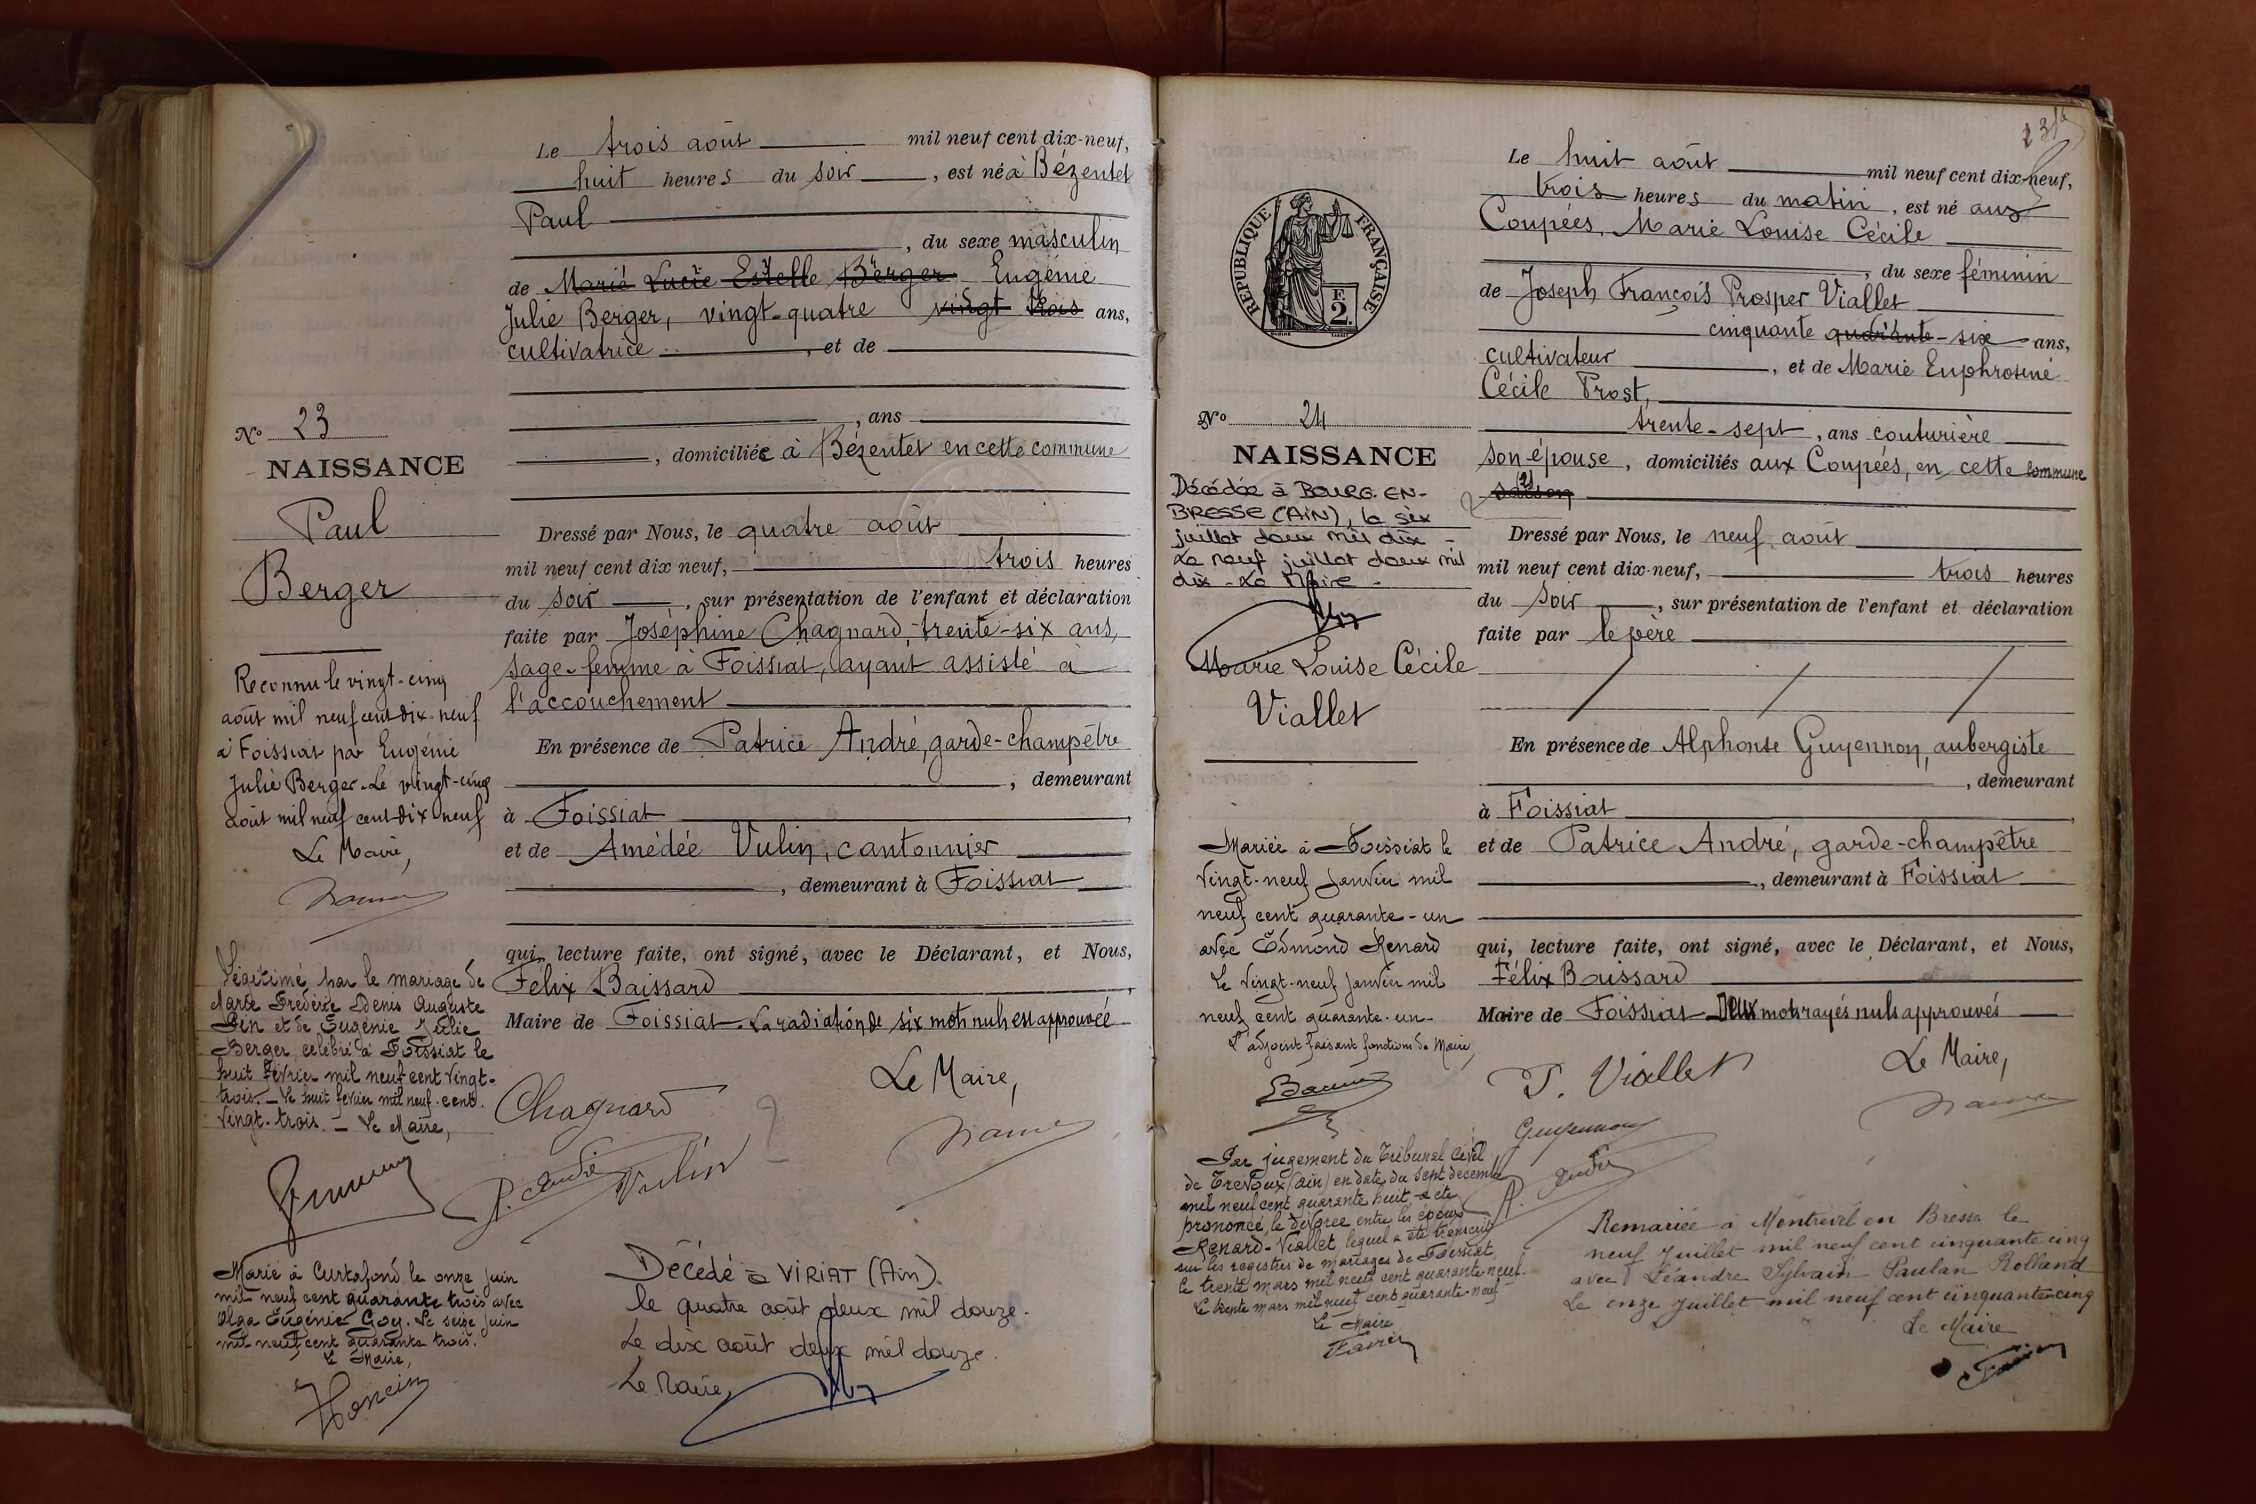 Le trois août mil neuf cent dix-neuf,
huit heures du soir, est né à Bézentet
Paul
, du sexe masculin
de Marie Lucie Estelle Berger Eugénie
Julie Berger, vingt-quatre vingt trois ans,
cultivatrice, et de
, ans
, domiciliée à Bézentet en cette commune
No 23
NAISSANCE
Paul
Berger
Dressé par Nous, le quatre août
mil neuf cent dix neuf, trois heures
du soir, sur présentation de l'enfant et déclaration
faite par Joséphine Chagnard, trente-six ans,
sage-femme à Foissiat, ayant assisté à
l'accouchement
En présence de Patrice André, garde-champêtre
, demeurant
à Foissiat,
et de Amédée Vulin, cantonnier
, demeurant à Foissiat
qui, lecture faite, ont signé, avec le Déclarant, et Nous,
Félix Baissard,
Maire de Foissiat. La radiation de six mots nuls est approuvée
Le Maire,
Chagnard
P. André
Vulin
Reconnu le vingt-cinq
août mil neuf cent dix-neuf
à Foissiat par Eugénie
Julie Berger. Le vingt-cinq
août mil neuf cent dix neuf
Le Maire,
Légitimé par le mariage de
Marie Frédéric Denis Auguste
et de Eugénie Julie
Berger célébré à Foissiat le
huit février mil neuf cent vingt-
trois. - Le huit février mil neuf-cent
vingt-trois. - Le Maire,
Marié à Curtafond le onze juin
mil neuf cent quarante trois avec
Olga Eugénie Goy. Le seize juin
mil neuf cent quarante trois.
Le Maire,
Décédé à VIRIAT (Ain).
le quatre août deux mil douze.
Le dix août deux mil douze.
Le Maire,
Le huit août mil neuf cent dix-neuf,
trois heures du matin, est né aux
Coupées, Marie Louise Cécile
, du sexe féminin
de Joseph François Prosper Viallet
cinquante quarante-six ans,
cultivateur, et de Marie Euphrosine
Cécile Prost,
trente-sept, ans couturière
son épouse, domiciliés aux Coupées, en cette commune
RÉPUBLIQUE FRANÇAISE
E
2.
No 24
NAISSANCE
Décédée à BOURG-EN-
BRESSE (AIN), le six
juillet deux mil dix -
Le neuf juillet deux mil
dix - Le Maire -
Marie Louise Cécile
Viallet
Dressé par Nous, le neuf août
mil neuf cent dix-neuf, trois heures
du soir, sur présentation de l'enfant et déclaration
faite par le père
En présence de Alphonse Guyennon, aubergiste
, demeurant
à Foissiat,
et de Patrice André, garde-champêtre
, demeurant à Foissiat
qui, lecture faite, ont signé, avec le Déclarant, et Nous,
Félix Baissard
Maire de Foissiat Deux mots rayés nuls approuvés
Le Maire,
P. Viallet
Guyennon
P. André
Mariée à Foissiat le
vingt-neuf Janvier mil
neuf cent quarante-un
avec Edmond Renard
Le vingt-neuf janvier mil
neuf cent quarante-un-
L'adjoint faisant fonctions de Maire
Par jugement du Tribunal Civil
de Trévoux (Ain) en date du sept décembre
mil neuf cent quarante huit, a été
prononcé le divorce entre les époux
Renard-Viallet, lequel a été transcrit
sur les registres de mariages de Foissiat
le trente mars mil neuf cent quarante-neuf.
Le trente mars mil neuf cent quarante-neuf
Le Maire
Remariée à Montrevel en Bresse le
neuf Juillet mil neuf cent cinquante cinq
avec Léandre Sylvain Paulan Rolland
Le onze Juillet mil neuf cent cinquante-cinq
Le Maire